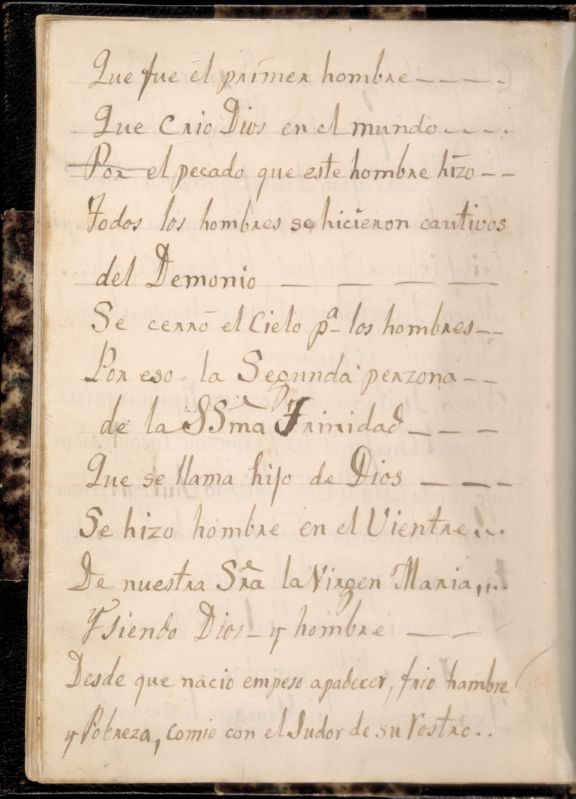 Que fue el primer hombre ----
Que crio Dios en el mundo ----
Por el pecado que este hombre hizo --
Todos los hombres se hicieron cautivos
del Demonio - - - -
Se cerró el Cielo pª los hombres --
Por eso la Segunda perzona --
de la SSma Trinidad ---
Que se llama hijo de Dios ---
Se hizo hombre en el Vientre...
De nuestra Sra la Virgen Maria,...
Y siendo Dios - y hombre ---
Desde que nacio empeso apadecer, frio hambre
y Pobreza, comio con el Sudor de su rostro..